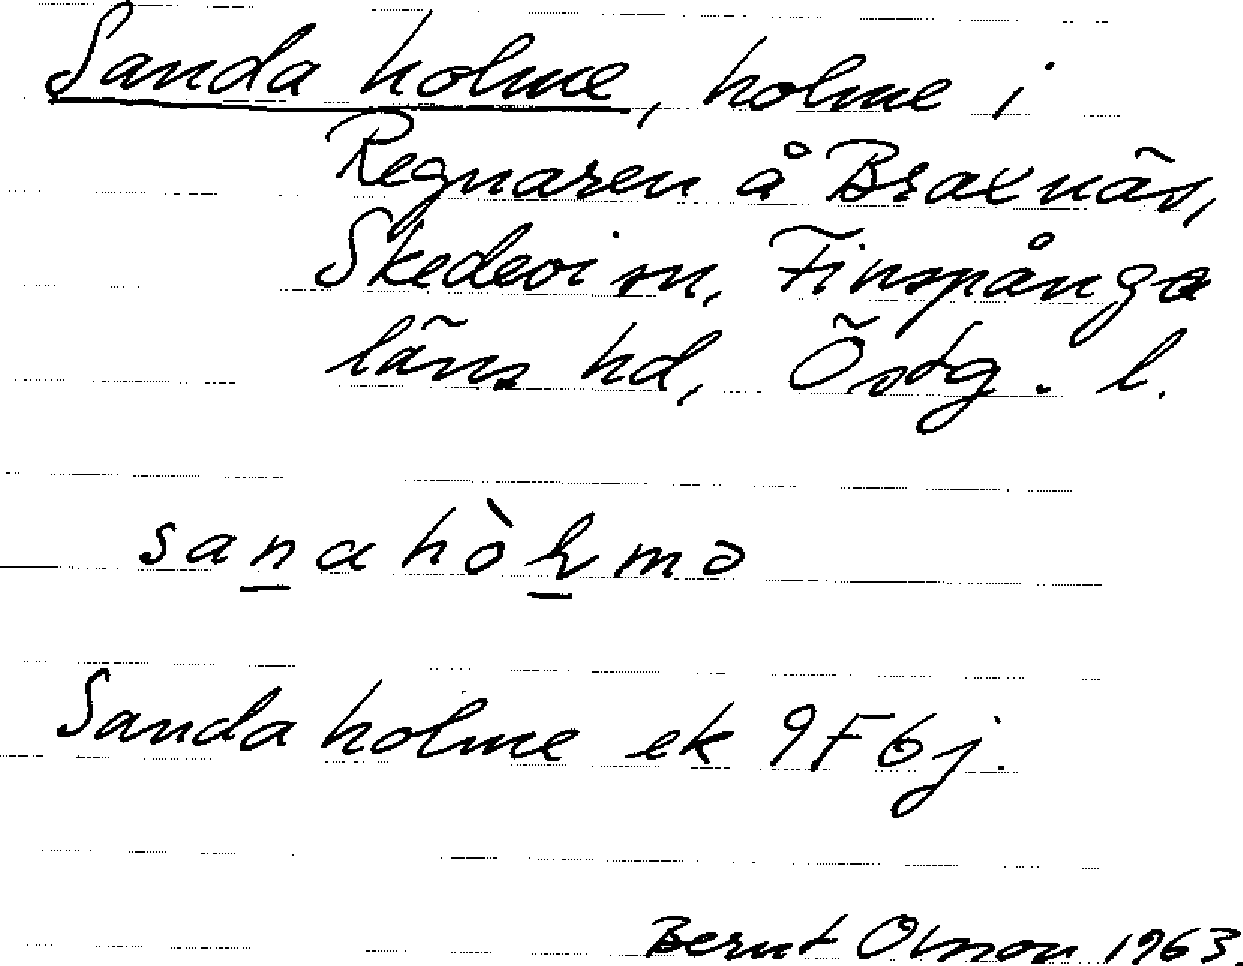 Sanda holme, holme i
Regnaren å Braxnäs,
Skedevi sn, Finspånga
läns hd, Östg. l.
sanahòlmə
Sanda holme ek 9F6j.
Bernt Olsson 1963.